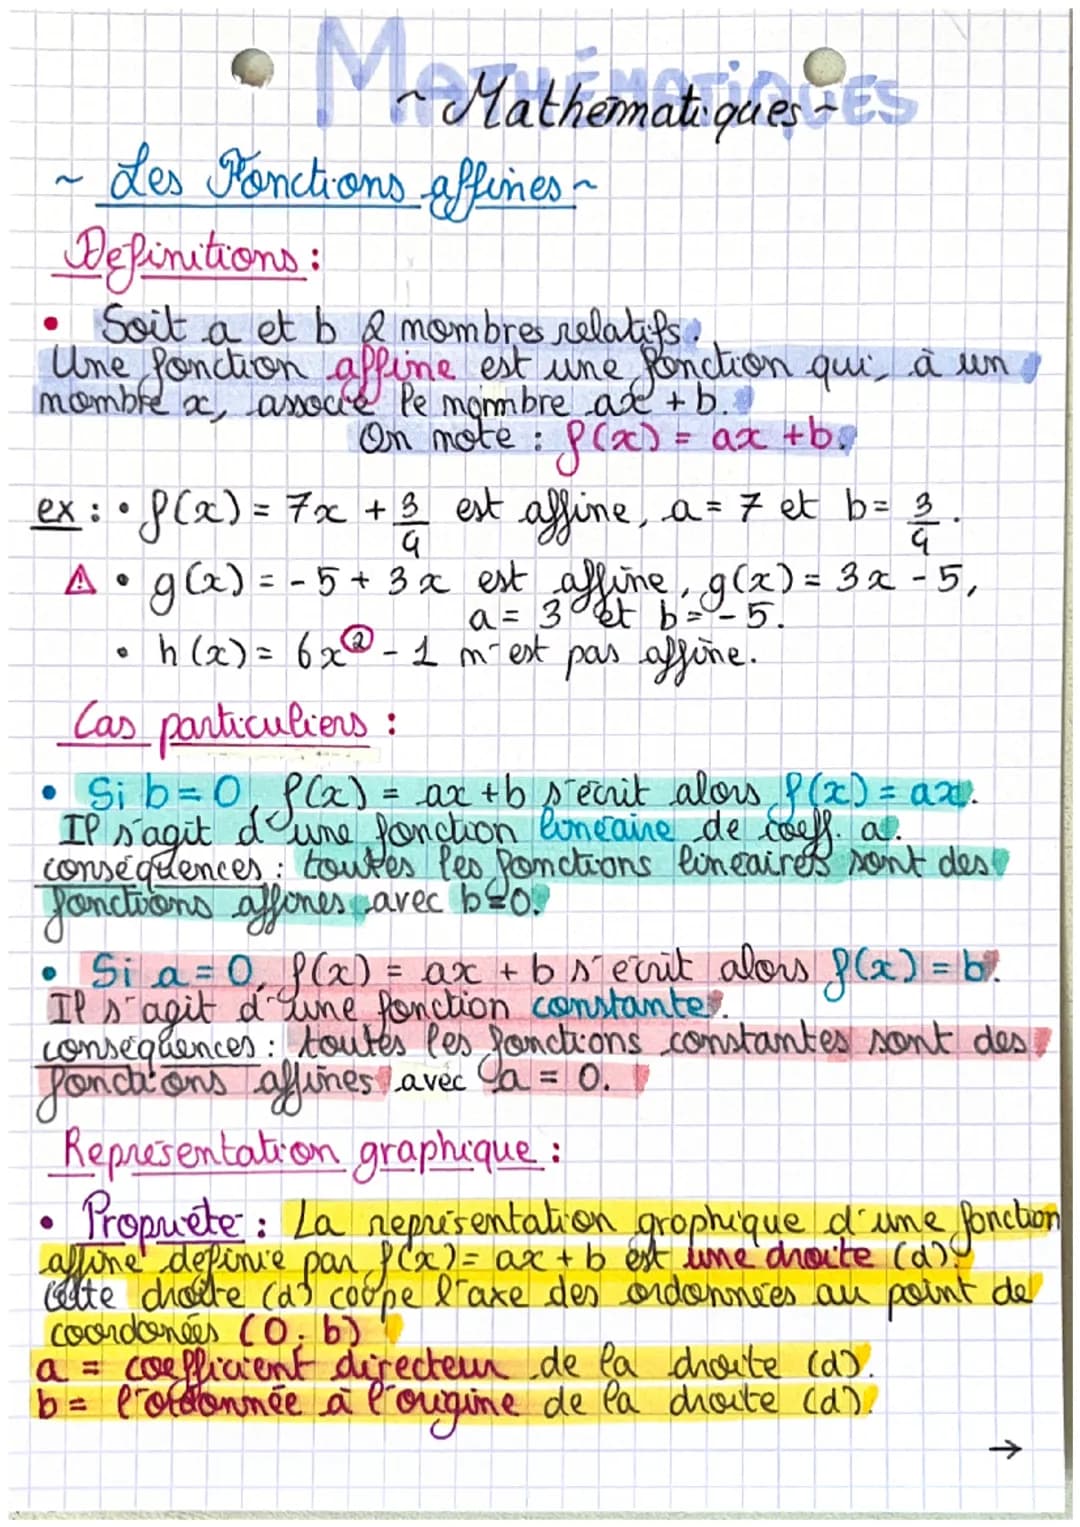 MATHÉMATIQUES
~ Mathématiques ~
~ Les Fonctions affines ~
Définitions :
• Soit a et b 2 nombres relatifs.
Une fonction affine est une fonction qui, à un
nombre x, associe le nombre ax + b.
On note : f(x) = ax + b.
ex : • f(x) = 7x + 3/4 est affine, a = 7 et b = 3/4.
⚠ • g(x) = - 5 + 3x est affine, g(x) = 3x - 5,
a = 3 et b = - 5.
• h(x) = 6x² - 1 n'est pas affine.
Cas particuliers :
• Si b = 0, f(x) = ax + b s'écrit alors f(x) = ax.
Il s'agit d'une fonction linéaire de coeff. a.
conséquences : toutes les fonctions linéaires sont des
fonctions affines avec b = 0.
• Si a = 0, f(x) = ax + b s'écrit alors f(x) = b.
Il s'agit d'une fonction constante.
conséquences : toutes les fonctions constantes sont des
fonctions affines avec a = 0.
Représentation graphique :
• Propriété : La représentation graphique d'une fonction
affine définie par f(x) = ax + b est une droite (d).
Cette droite (d) coupe l'axe des ordonnées au point de
coordonées (0 ; b)
a = coefficient directeur de la droite (d).
b = l'ordonnée à l'origine de la droite (d).
→